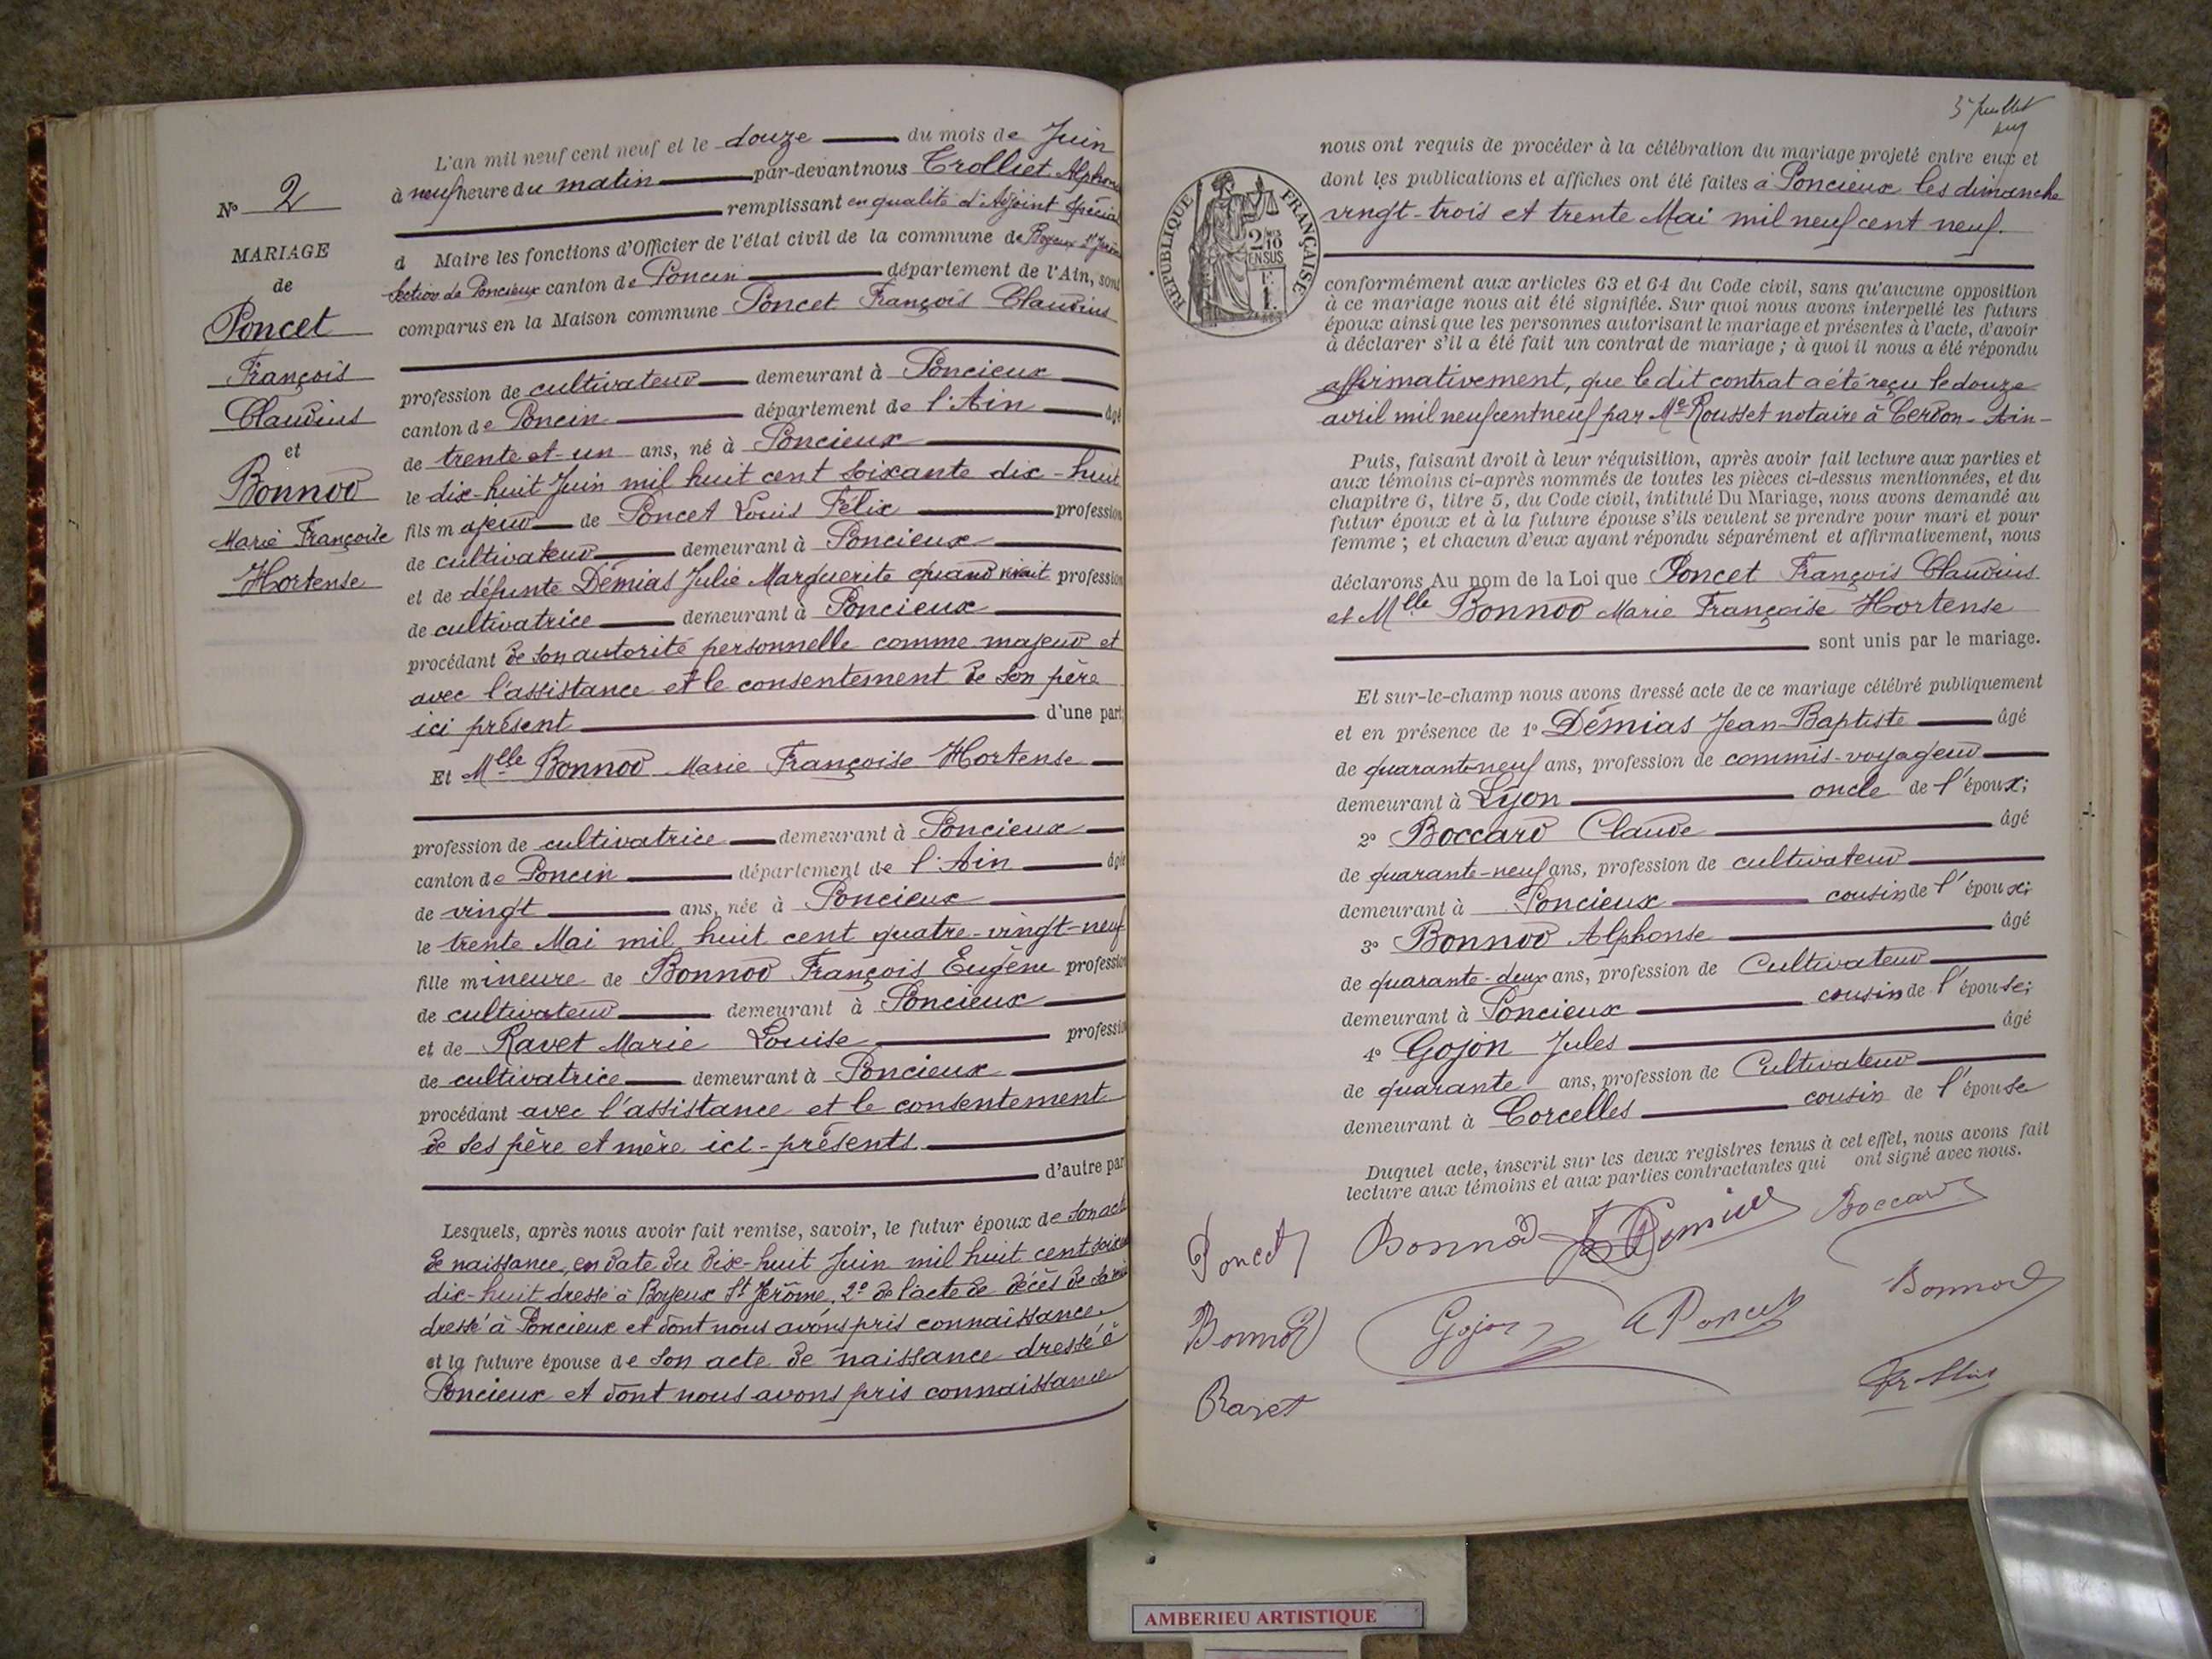 L'an mil neuf cent neuf et le douze du mois de Juin
à neuf heure du matin par-devant nous Trolliet Alphonse
remplissant en qualité d'Adjoint Spécial
d Maire les fonctions d'Officier de l'état civil de la commune de Boyeux St Jérôme
Section de Poncieux canton de Poncin département de l'Ain, sont
comparus en la Maison commune Poncet François Claudius
profession de cultivateur demeurant à Poncieux
canton de Poncin département de l'Ain âgé
de trente et un ans, né à Poncieux
le dix-huit Juin mil huit cent soixante dix-huit
fils majeur de Poncet Louis Félix profession
de cultivateur demeurant à Poncieux
et de défunte Démias Julie Marguerite quand vivait profession
de cultivatrice demeurant à Poncieux
procédant de son autorité personnelle comme majeur et
avec l'assistance et le consentement de son père
ici présent d'une part;
Et Mlle Bonnod Marie Françoise Hortense
profession de cultivatrice demeurant à Poncieux
canton de Poncin département de l'Ain âgée
de vingt ans, née à Poncieux
le trente Mai mil huit cent quatre-vingt-neuf
fille mineure de Bonnod François Eugène profession
de cultivateur demeurant à Poncieux
et de Ravet Marie Louise profession
de cultivatrice demeurant à Poncieux
procédant avec l'assistance et le consentement
de ses père et mère ici-présents.
d'autre part
Lesquels, après nous avoir fait remise, savoir, le futur époux de son acte
de naissance, en date du dix-huit Juin mil huit cent soixante
dix-huit dressé à Boyeux St Jérôme, 2º de l'acte de décès de sa mère
dressé à Poncieux et dont nous avons pris connaissance.
et la future épouse de son acte de naissance dressé à
Poncieux et dont nous avons pris connaissance
Nº 2
MARIAGE
de
Poncet
François
Claudius
et
Bonnod
Marie Françoise
Hortense
3e feuillet
RÉPUBLIQUE FRANÇAISE
2/10 EN SUS
nous ont requis de procéder à la célébration du mariage projeté entre eux et
dont les publications et affiches ont été faites à Poncieux les dimanche
vingt-trois et trente Mai mil neuf cent neuf.
conformément aux articles 63 et 64 du Code civil, sans qu'aucune opposition
à ce mariage nous ait été signifiée. Sur quoi nous avons interpellé les futurs
époux ainsi que les personnes autorisant le mariage et présentes à l'acte, d'avoir
à déclarer s'il a été fait un contrat de mariage ; à quoi il nous a été répondu
affirmativement, que le dit contrat a été reçu le douze
avril mil neuf cent neuf par Me Rousset notaire à Cerdon - Ain -
Puis, faisant droit à leur réquisition, après avoir fait lecture aux parties et
aux témoins ci-après nommés de toutes les pièces ci-dessus mentionnées, et du
chapitre 6, titre 5, du Code civil, intitulé Du Mariage, nous avons demandé au
futur époux et à la future épouse s'ils veulent se prendre pour mari et pour
femme ; et chacun d'eux ayant répondu séparément et affirmativement, nous
déclarons Au nom de la Loi que Poncet François Claudius
et Mlle Bonnod Marie Françoise Hortense
sont unis par le mariage.
Et sur-le-champ nous avons dressé acte de ce mariage célébré publiquement
et en présence de 1º Démias Jean-Baptiste âgé
de quarante-neuf ans, profession de commis-voyageur
demeurant à Lyon oncle de l'époux;
2º Boccard Claude âgé
de quarante-neuf ans, profession de cultivateur
demeurant à Poncieux cousin de l'époux;
3º Bonnod Alphonse âgé
de quarante-deux ans, profession de Cultivateur
demeurant à Poncieux cousin de l'épouse;
4º Gojon Jules âgé
de quarante ans, profession de Cultivateur
demeurant à Corcelles cousin de l'épouse
Duquel acte, inscrit sur les deux registres tenus à cet effet, nous avons fait
lecture aux témoins et aux parties contractantes qui ont signé avec nous.
Poncet Bonnod Demias Boccard
Bonnod Gojon Poncet Bonnod
Ravet Trolliet
AMBERIEU ARTISTIQUE